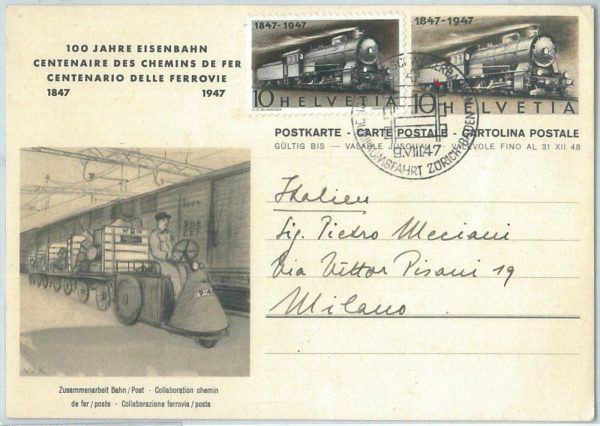 100 JAHRE EISENBAHN
CENTENAIRE DES CHEMINS DE FER
CENTENARIO DELLE FERROVIE
1847 1947
1847-1947
10 HELVETIA
1847-1947
10 HELVETIA
POSTKARTE - CARTE POSTALE - CARTOLINA POSTALE
GÜLTIG BIS — VALABLE JUSQU'AU — VEVOLE FINO AL 31 XII 48
9.VIII.47
ZÜRICH-BADEN
Italien
Sig. Pietro Meciani
Via Vittor Pisani 19
Milano
Zusammenarbeit Bahn/Post - Collaboration chemin
de fer/poste - Collaborazione ferrovia/posta